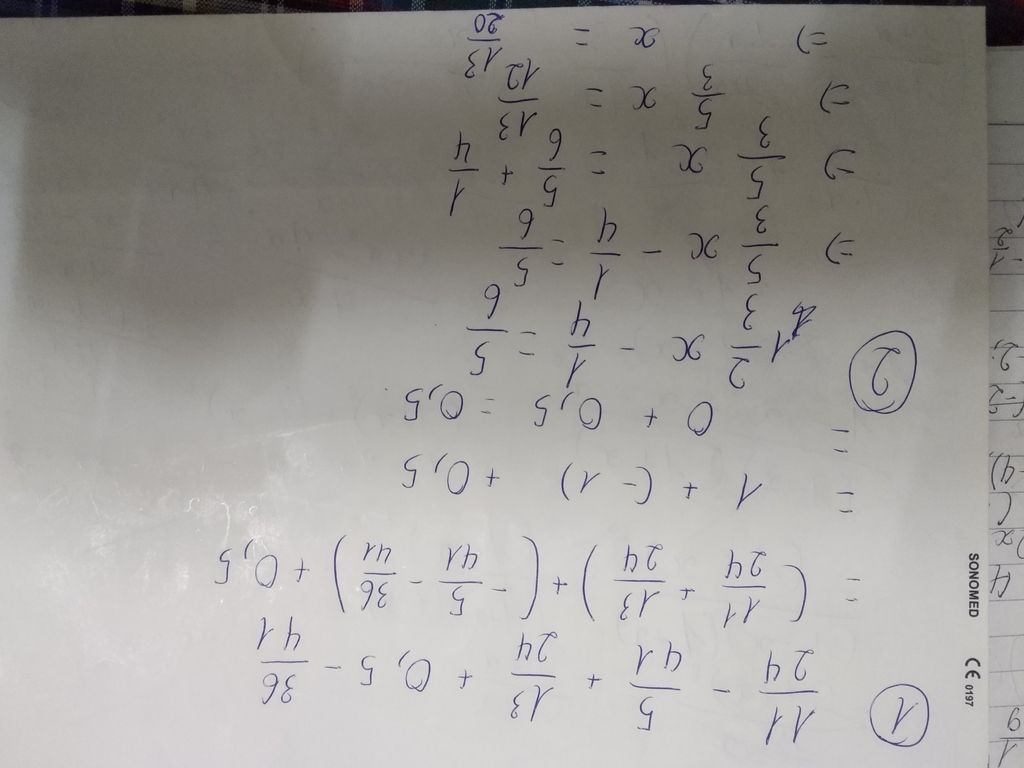 1 11/24 - 5/41 + 13/24 + 0,5 - 36/41
= (11/24 + 13/24) + (-5/41 - 36/41) + 0,5
= 1 + (-1) + 0,5
= 0 + 0,5 = 0,5
2 1 2/3 x - 1/4 = 5/6
=) 5/3 x - 1/4 = 5/6
=) 5/3 x = 5/6 + 1/4
=) 5/3 x = 13/12
=) x = 13/20
SONOMED CE 0197